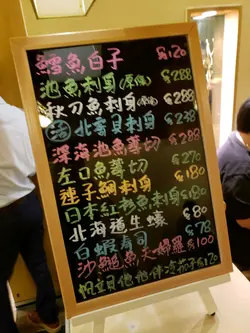 鱈魚白子 $120
池魚刺身(原條) $288
秋刀魚刺身(原條) $288
活北寄貝刺身 $238
深海池魚薄切 $270
左口魚薄切 $180
蓮子鯛刺身 $180
日本紅衫魚刺身 $180
北海道生蠔 $80
白蝦壽司 $78
沙鮻魚天婦羅 $100
帆立貝 $120